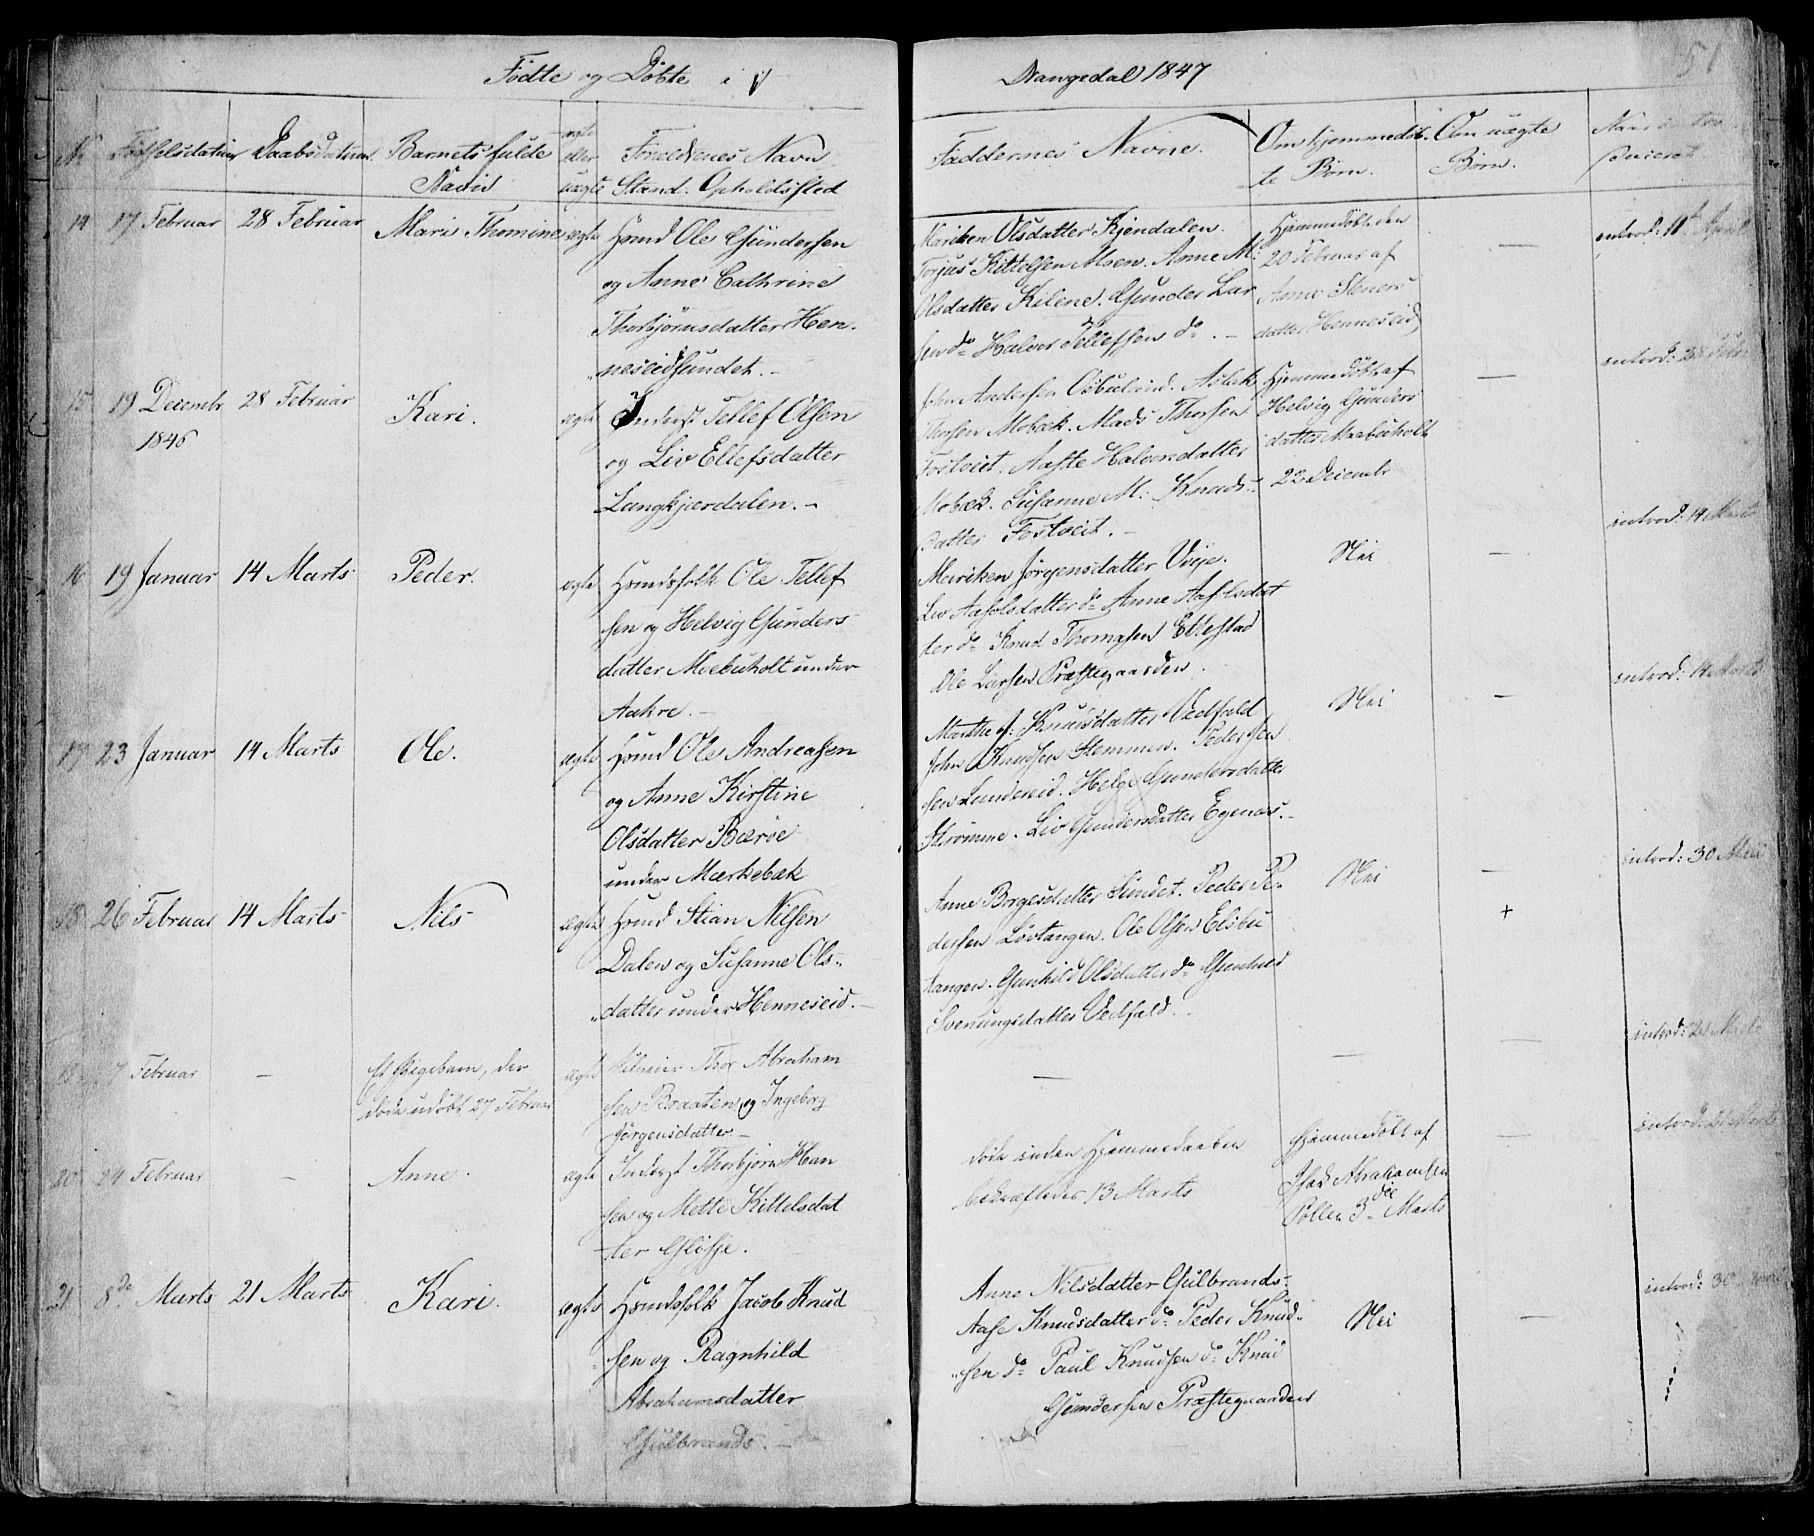 Fødte og Døbte i Drangedal 1847
51
No Fødselsdatum Daabsdatum Barnets fulde Navn ægte eller uægte Forældrenes Navn Stand. Opholdssted
Faddernes Navne. Om hjemmedøb-te Børn. Om uægte Børn.
14 17 Februar 28 Februar Mari Thomine ægte Hsmd Ole Gundersen
og Anne Cathrine
Thorbjørnsdatter Hen
neseidsundet. -
Mariken Olsdatter Kjendalen.
Torjus Kittelsen Moen. Anne M:
Olsdatter Kilene. Gunder Lar
sen do Halvor Tellefsen do. -
Hjemmedøbt den
20 Februar af
Anne Steners
datter Henneseid
—
introd: 11 April
15 19 Decembr 28 Februar Kari. ægte Inderst Tellef Olsen
1846
og Liv Ellefsdatter
Langkjærdalen. -
John Andersen Osbulind. Aslak
Thorsen Mobæk. Mads Thorsen
Fostveit. Aaste Halvorsdatter
Mobæk. Susanne M: Knuds-
datter Fostveit. -
Hjemmedøbt af
Helvig Gunders
datter Moebuholt
22 Decembr
—
introd: 28 Febr
16 19 Januar 14 Marts Peder. ægte Hsmdsfolk Ole Tellef
sen og Helvig Gunders
datter Moebuholt under
Aakre. -
Mariken Jørgensdatter Vøje.
Liv Aasolsdatter do Anne Aaslsdat
ter do Knud Thomasen Ettestad
Ole Larsen Præstegaarden.
Nei
—
introd: 14 Marts
17 23 Januar 14 Marts Ole. ægte Hsmd Ole Andreasen
og Anne Kirstine
Olsdatter Bærøe
under Mærkebæk
Marthe A: Knudsdatter Vedfald
John Knudsen Stemmen. Peder Jen
sen Lundereid. Helge Gundersdatter
Strømme. Liv Gundersdatter Egenæs. -
Nei
—
introd: 14 Marts
18 26 Februar 14 Marts Nils ægte Hsmd Stian Nilsen
Dalen og Susanne Ols-
datter under Henneseid. -
Anne Borgesdatter Sundet. Peder Pe-
dersen Løvtangen. Ole Olsen Elsbu
tangen. Gunhild Olsdatter do Gunhild
Svenungsdatter Vedfald.
Nei
—
+
introd: 30 Mai
7 Februar — Et Pigebarn, der
døde udøbt 27 Februar
ægte Selveier Thor Abraham
sen Braaten og Ingeborg
Jørgensdatter -
—
—
—
introd: 21 Marts
20 24 Februar — Anne. ægte Inderst Thorbjørn Han
sen og Mette Kittelsdat
ter Gløsje.
døde inden Hjemmedaaben
bekræftedes 13 Marts
Hjemmedøbt af
Isak Abrahamsen
Pollen 3die Marts
—
introd: 21 Marts
21 8de Marts 21 Marts Kari. ægte Hsmdsfolk Jacob Knud
sen og Ragnhild
Abrahamsdatter
Gulbrands. -
Anne Nilsdatter Gulbrands-
Aase Knudsdatter do Peder Knud-
sen do Paul Knudsen do Knud
Gundersen Præstegaarden
Nei
—
introd: 30